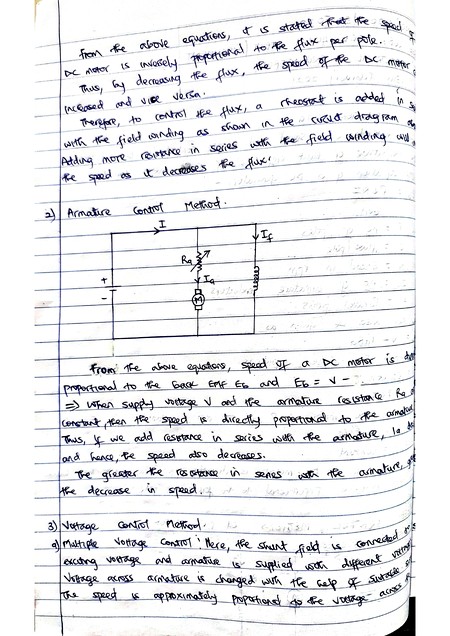 From the above equations, it is stated that the speed of
DC motor is inversely proportional to the flux per pole.
Thus, by decreasing the flux, the speed of the DC motor
increased and vice versa.
Therefore, to control the flux, a rheostat is added in
with the field winding as shown in the circuit diagram
Adding more resistance in series with the field winding will
the speed as it decreases the flux.
2) Armature Control Method.
I
If
Ra
Ia
+
-
M
From the above equations, speed of a DC motor is
proportional to the back EMF Eb and Eb = V -
⇒ When supply voltage V and the armature resistance Ra
constant, then the speed is directly proportional to the armature
Thus, if we add resistance in series with the armature, Ia
and hence, the speed also decreases.
The greater the resistance in series with the armature,
the decrease in speed.
3) Voltage Control Method.
a) Multiple Voltage Control: Here, the shunt field is connected
exciting voltage and armature is supplied with different
Voltage across armature is changed with the help of suitable
The speed is approximately proportional to the voltage across